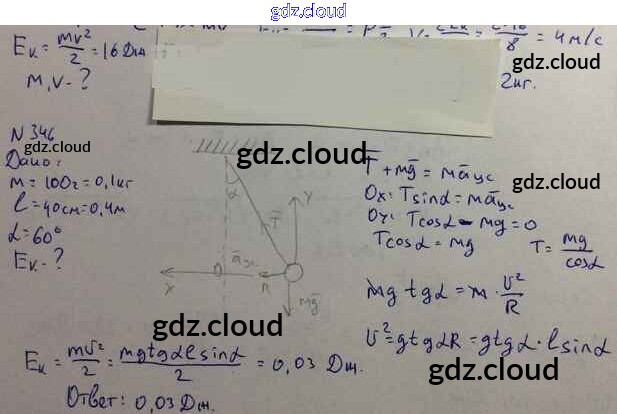 gdz.cloud
Eк = mv²/2 = 16 Дж
m, v - ?
= 4 м/с
2 кг.
gdz.cloud
gdz.cloud
N 346
Дано:
m = 100г = 0,1кг
l = 40см = 0,4м
α = 60°
Eк - ?
gdz.cloud
gdz.cloud
α
T̄
Y
āцс
X
O
R
mḡ
T̄ + mḡ = māцс
Ox: Tsinα = māцс
Oy: Tcosα - mg = 0
Tcosα = mg
T = mg/cosα
gdz.cloud
mg tgα = m · v²/R
v² = gtgαR = gtgα · lsinα
gdz.cloud
Eк = mv²/2 = mgtgαlsinα/2 = 0,03 Дж.
Ответ: 0,03 Дж.
gdz.cloud
gdz.cloud